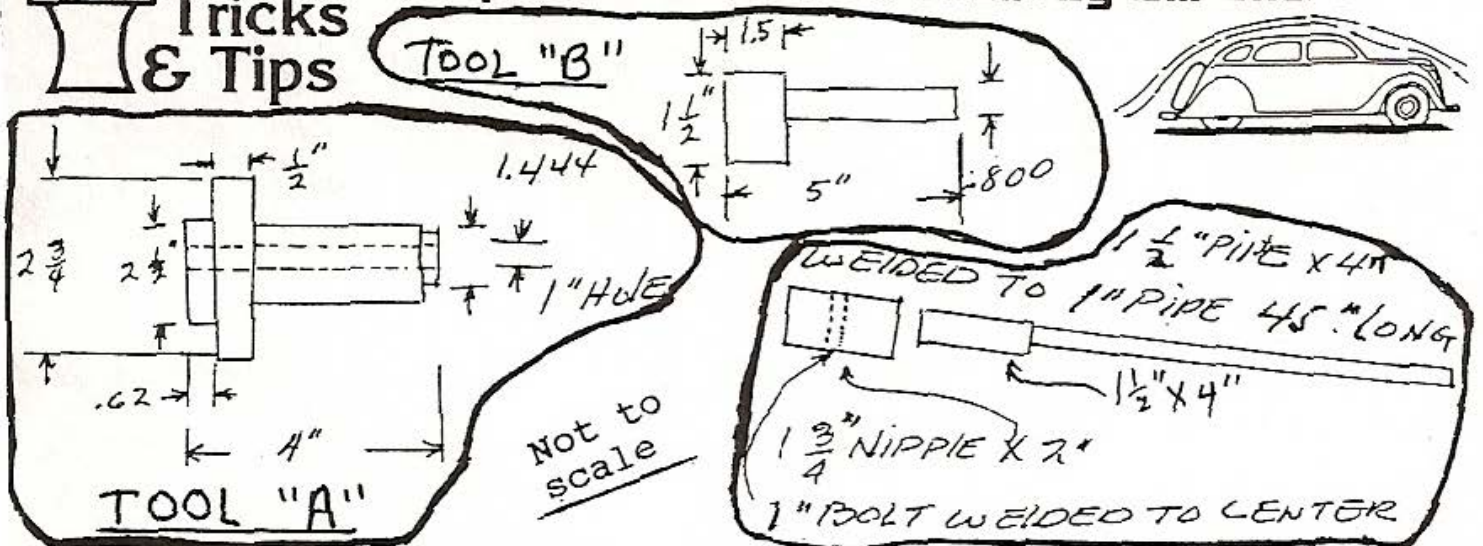 Tricks
& Tips
TOOL "B"
1.5
1 1/2"
5"
.800
1/2"
1.444
2 3/4
2 1/2"
1" HOLE
.62
4"
TOOL "A"
Not to
scale
1 1/2" PIPE X 4"
WELDED TO 1" PIPE 45" LONG
1 1/2" X 4"
1 3/4" NIPPLE X 2"
1" BOLT WELDED TO CENTER